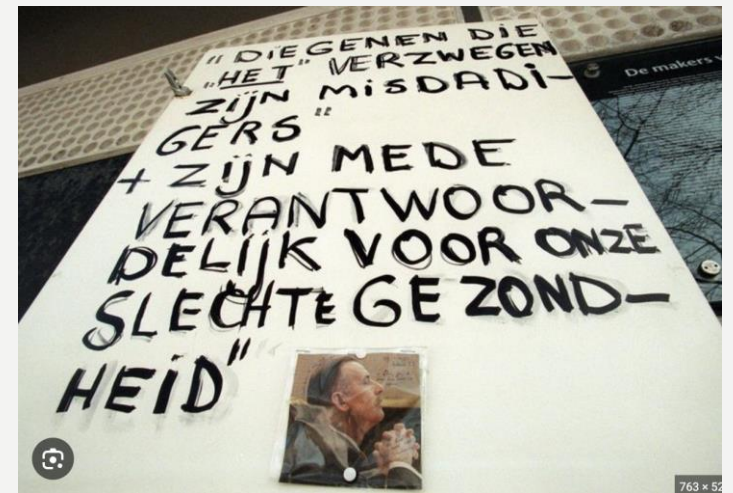 "DIEGENEN DIE
"HET" VERZWEGEN
ZIJN MISDADI-
GERS "
+ ZIJN MEDE
VERANTWOOR-
DELIJK VOOR ONZE
SLECHTE GEZOND-
HEID"
De makers
763 × 52